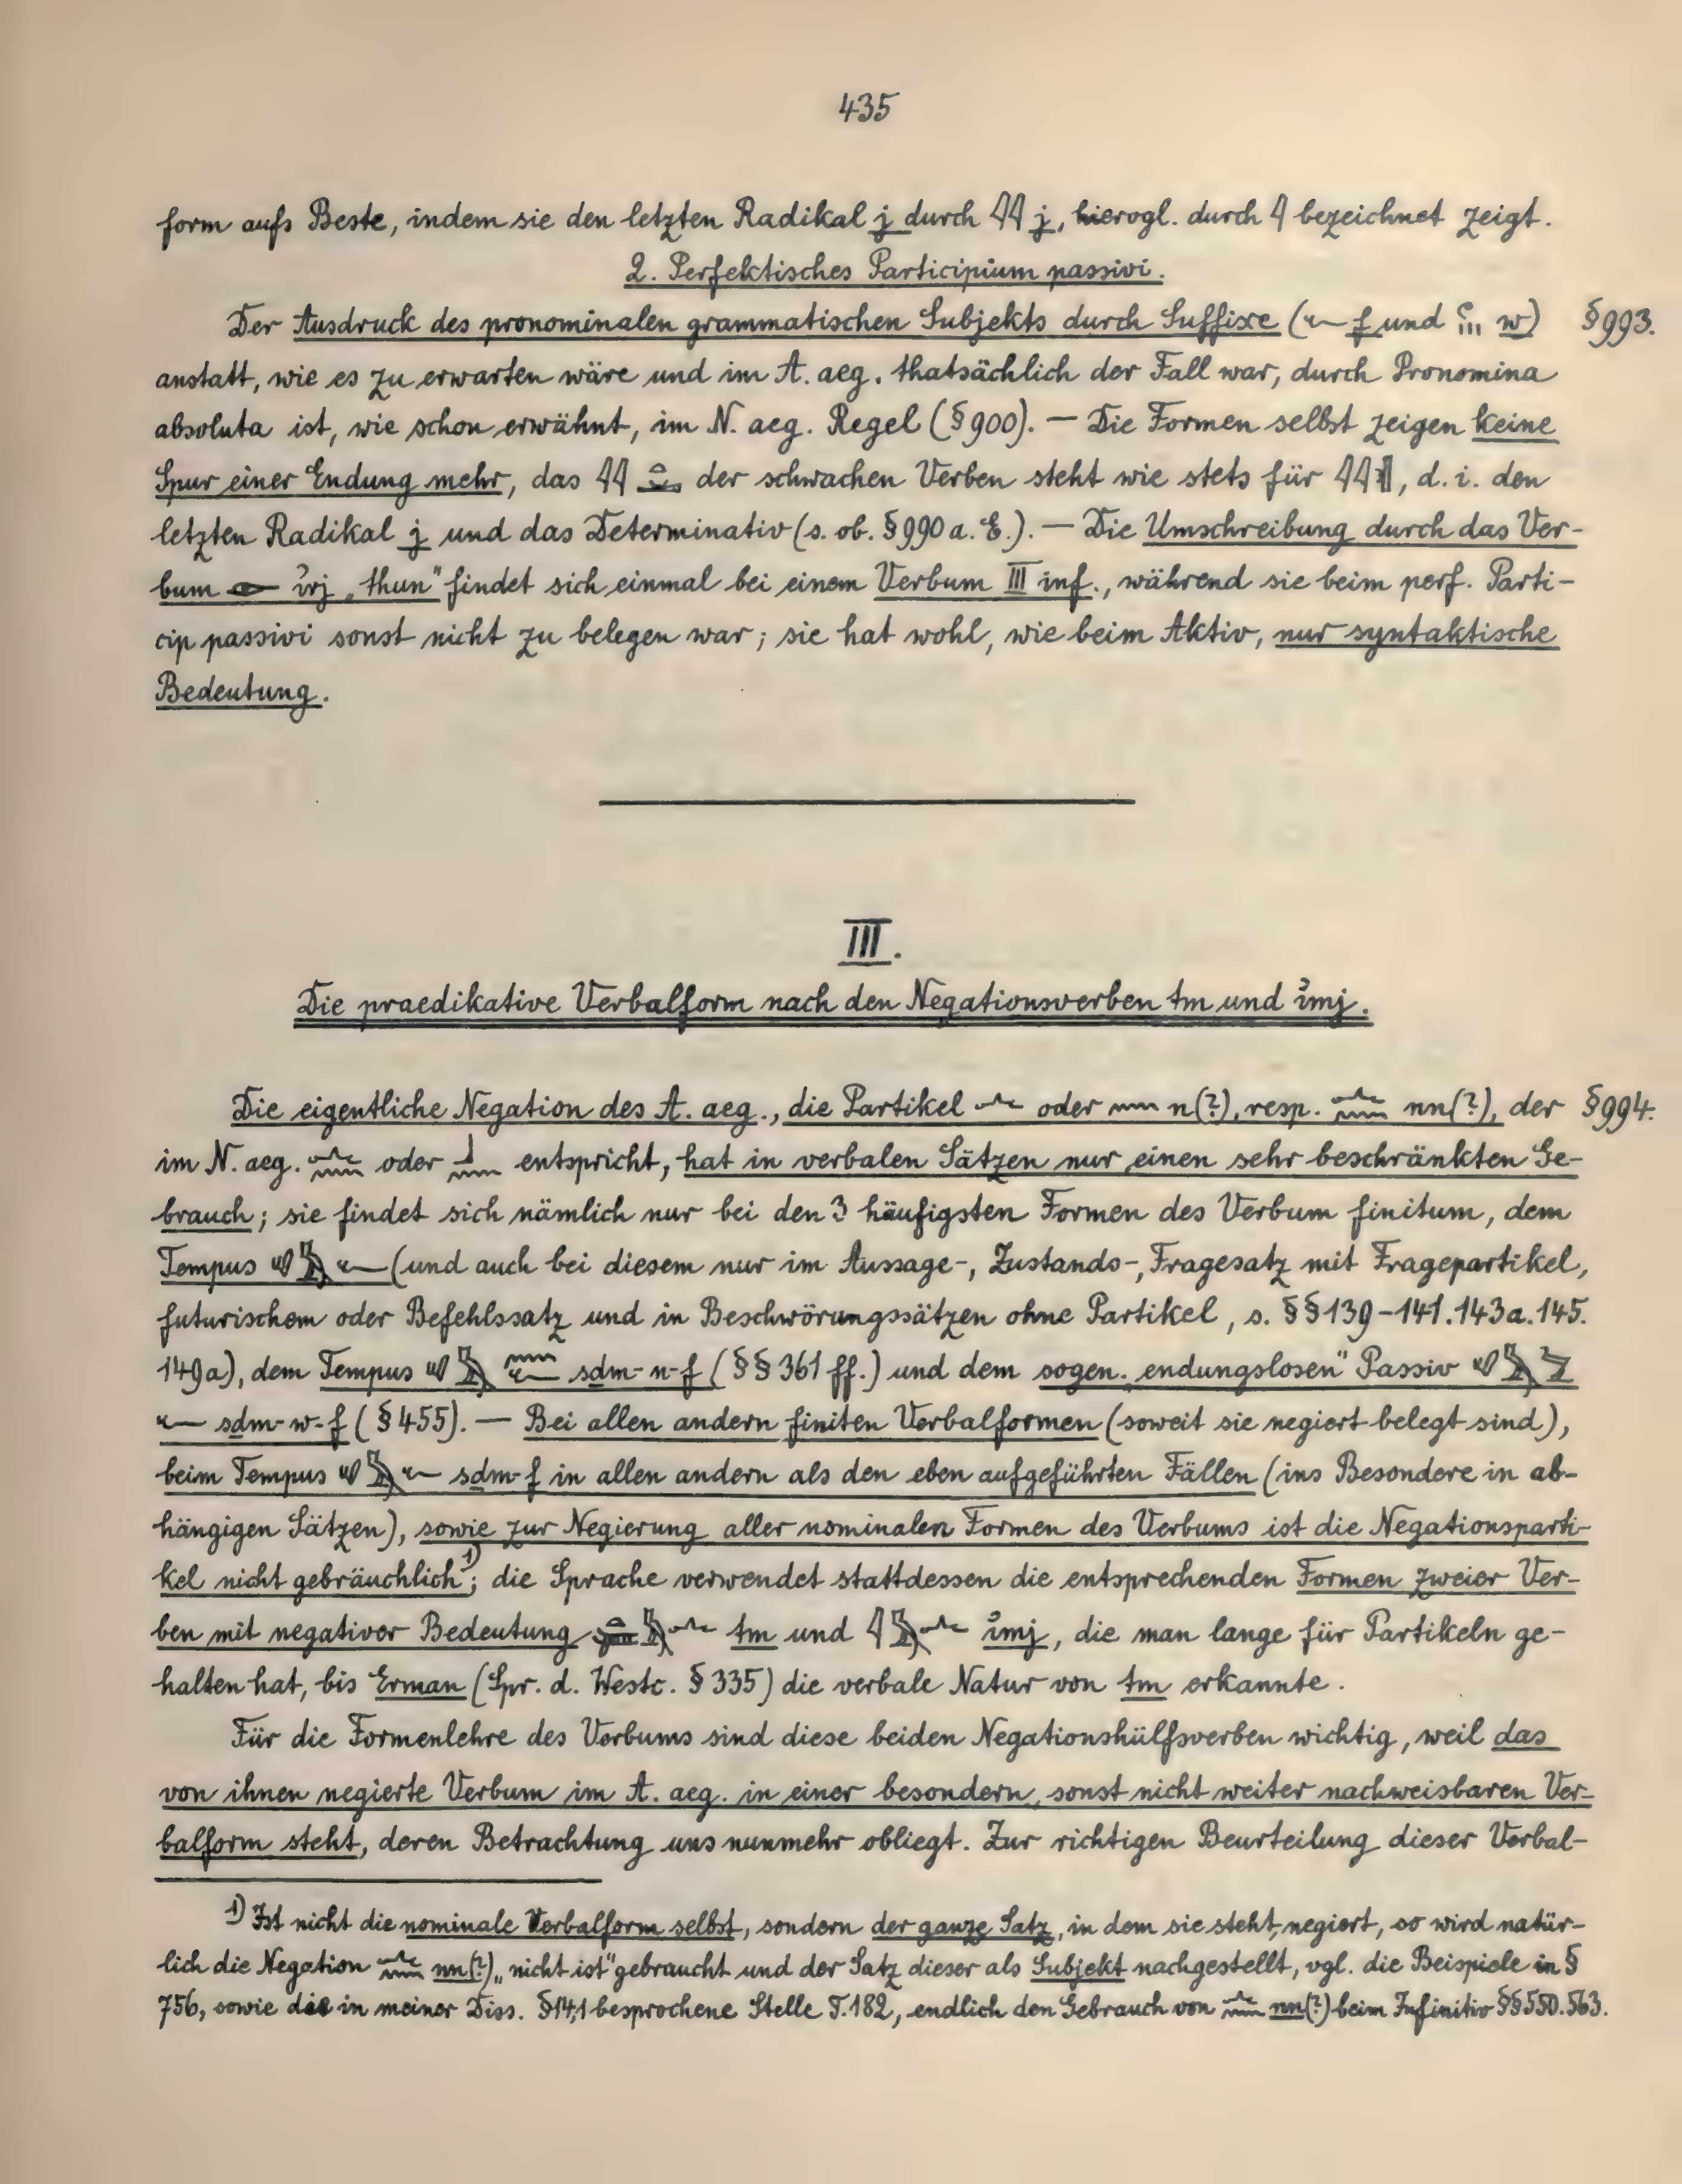 435
form aufs Beste, indem sie den letzten Radikal j durch 𓇋𓇋 j, hierogl. durch 𓇋 bezeichnet zeigt.
2. Perfektisches Participium passivi.
Der Ausdruck des pronominalen grammatischen Subjekts durch Suffixe (𓆑 f und 𓏲𓏥 w) §993.
anstatt, wie es zu erwarten wäre und im A. aeg. thatsächlich der Fall war, durch Pronomina
absoluta ist, wie schon erwähnt, im N. aeg. Regel (§900). — Die Formen selbst zeigen keine
Spur einer Endung mehr, das 𓇋𓇋 der schwachen Verben steht wie stets für 𓇋𓇋, d. i. den
letzten Radikal j und das Determinativ (s. ob. §990 a. E.). — Die Umschreibung durch das Ver-
bum 𓁹 ı͗rj „thun“ findet sich einmal bei einem Verbum III inf., während sie beim perf. Parti-
cip passivi sonst nicht zu belegen war; sie hat wohl, wie beim Aktiv, nur syntaktische
Bedeutung.
III.
Die praedikative Verbalform nach den Negationsverben tm und ı͗mj.
Die eigentliche Negation des A. aeg., die Partikel 𓂜 oder 𓈖 n(?), resp. 𓂜𓈖 nn(?), der §994.
im N. aeg. 𓂜𓈖 oder entspricht, hat in verbalen Sätzen nur einen sehr beschränkten Ge-
brauch; sie findet sich nämlich nur bei den 3 häufigsten Formen des Verbum finitum, dem
Tempus 𓄔𓅓𓆑 (und auch bei diesem nur im Aussage-, Zustands-, Fragesatz mit Fragepartikel,
futurischem oder Befehlssatz und in Beschwörungssätzen ohne Partikel, s. §§139-141.143a.145.
149a), dem Tempus 𓄔𓅓𓈖𓆑 sḏm-n-f (§§361 ff.) und dem sogen. „endungslosen“ Passiv 𓄔𓅓𓅱
𓆑 sḏm-w-f (§455). — Bei allen andern finiten Verbalformen (soweit sie negiert belegt sind),
beim Tempus 𓄔𓅓𓆑 sḏm-f in allen andern als den eben aufgeführten Fällen (ins Besondere in ab-
hängigen Sätzen), sowie zur Negierung aller nominalen Formen des Verbums ist die Negationsparti-
kel nicht gebräuchlich¹⁾; die Sprache verwendet stattdessen die entsprechenden Formen zweier Ver-
ben mit negativer Bedeutung 𓏏𓍃𓅓𓂜 tm und 𓇋𓅓𓂜 ı͗mj, die man lange für Partikeln ge-
halten hat, bis Erman (Spr. d. Westc. §335) die verbale Natur von tm erkannte.
Für die Formenlehre des Verbums sind diese beiden Negationshülfsverben wichtig, weil das
von ihnen negierte Verbum im A. aeg. in einer besondern, sonst nicht weiter nachweisbaren Ver-
balform steht, deren Betrachtung uns nunmehr obliegt. Zur richtigen Beurteilung dieser Verbal-
¹⁾ Ist nicht die nominale Verbalform selbst, sondern der ganze Satz, in dem sie steht, negiert, so wird natür-
lich die Negation 𓂜𓈖 nn(?) „nicht ist“ gebraucht und der Satz dieser als Subjekt nachgestellt, vgl. die Beispiele in §
756, sowie die in meiner Diss. §14,1 besprochene Stelle T. 182, endlich den Gebrauch von 𓂜𓈖 nn(?) beim Infinitiv §§550.563.